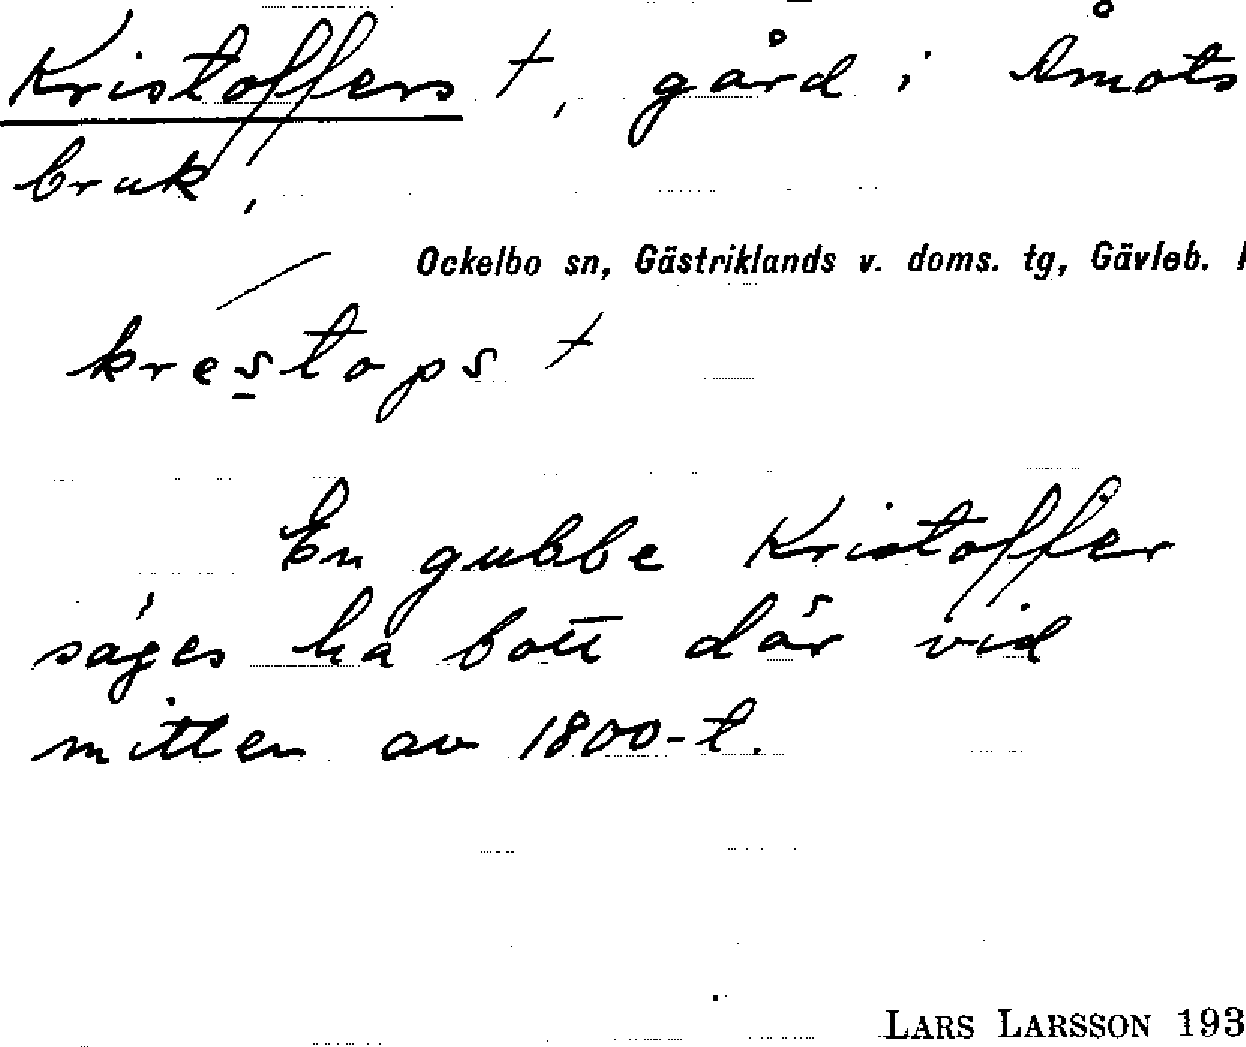 Kristoffers †, gård i Åmots
bruk,
Ockelbo sn, Gästriklands v. doms. tg, Gävleb.
krestops †
En gubbe Kristoffer
säges ha bott där vid
mitten av 1800-t.
LARS LARSSON 193